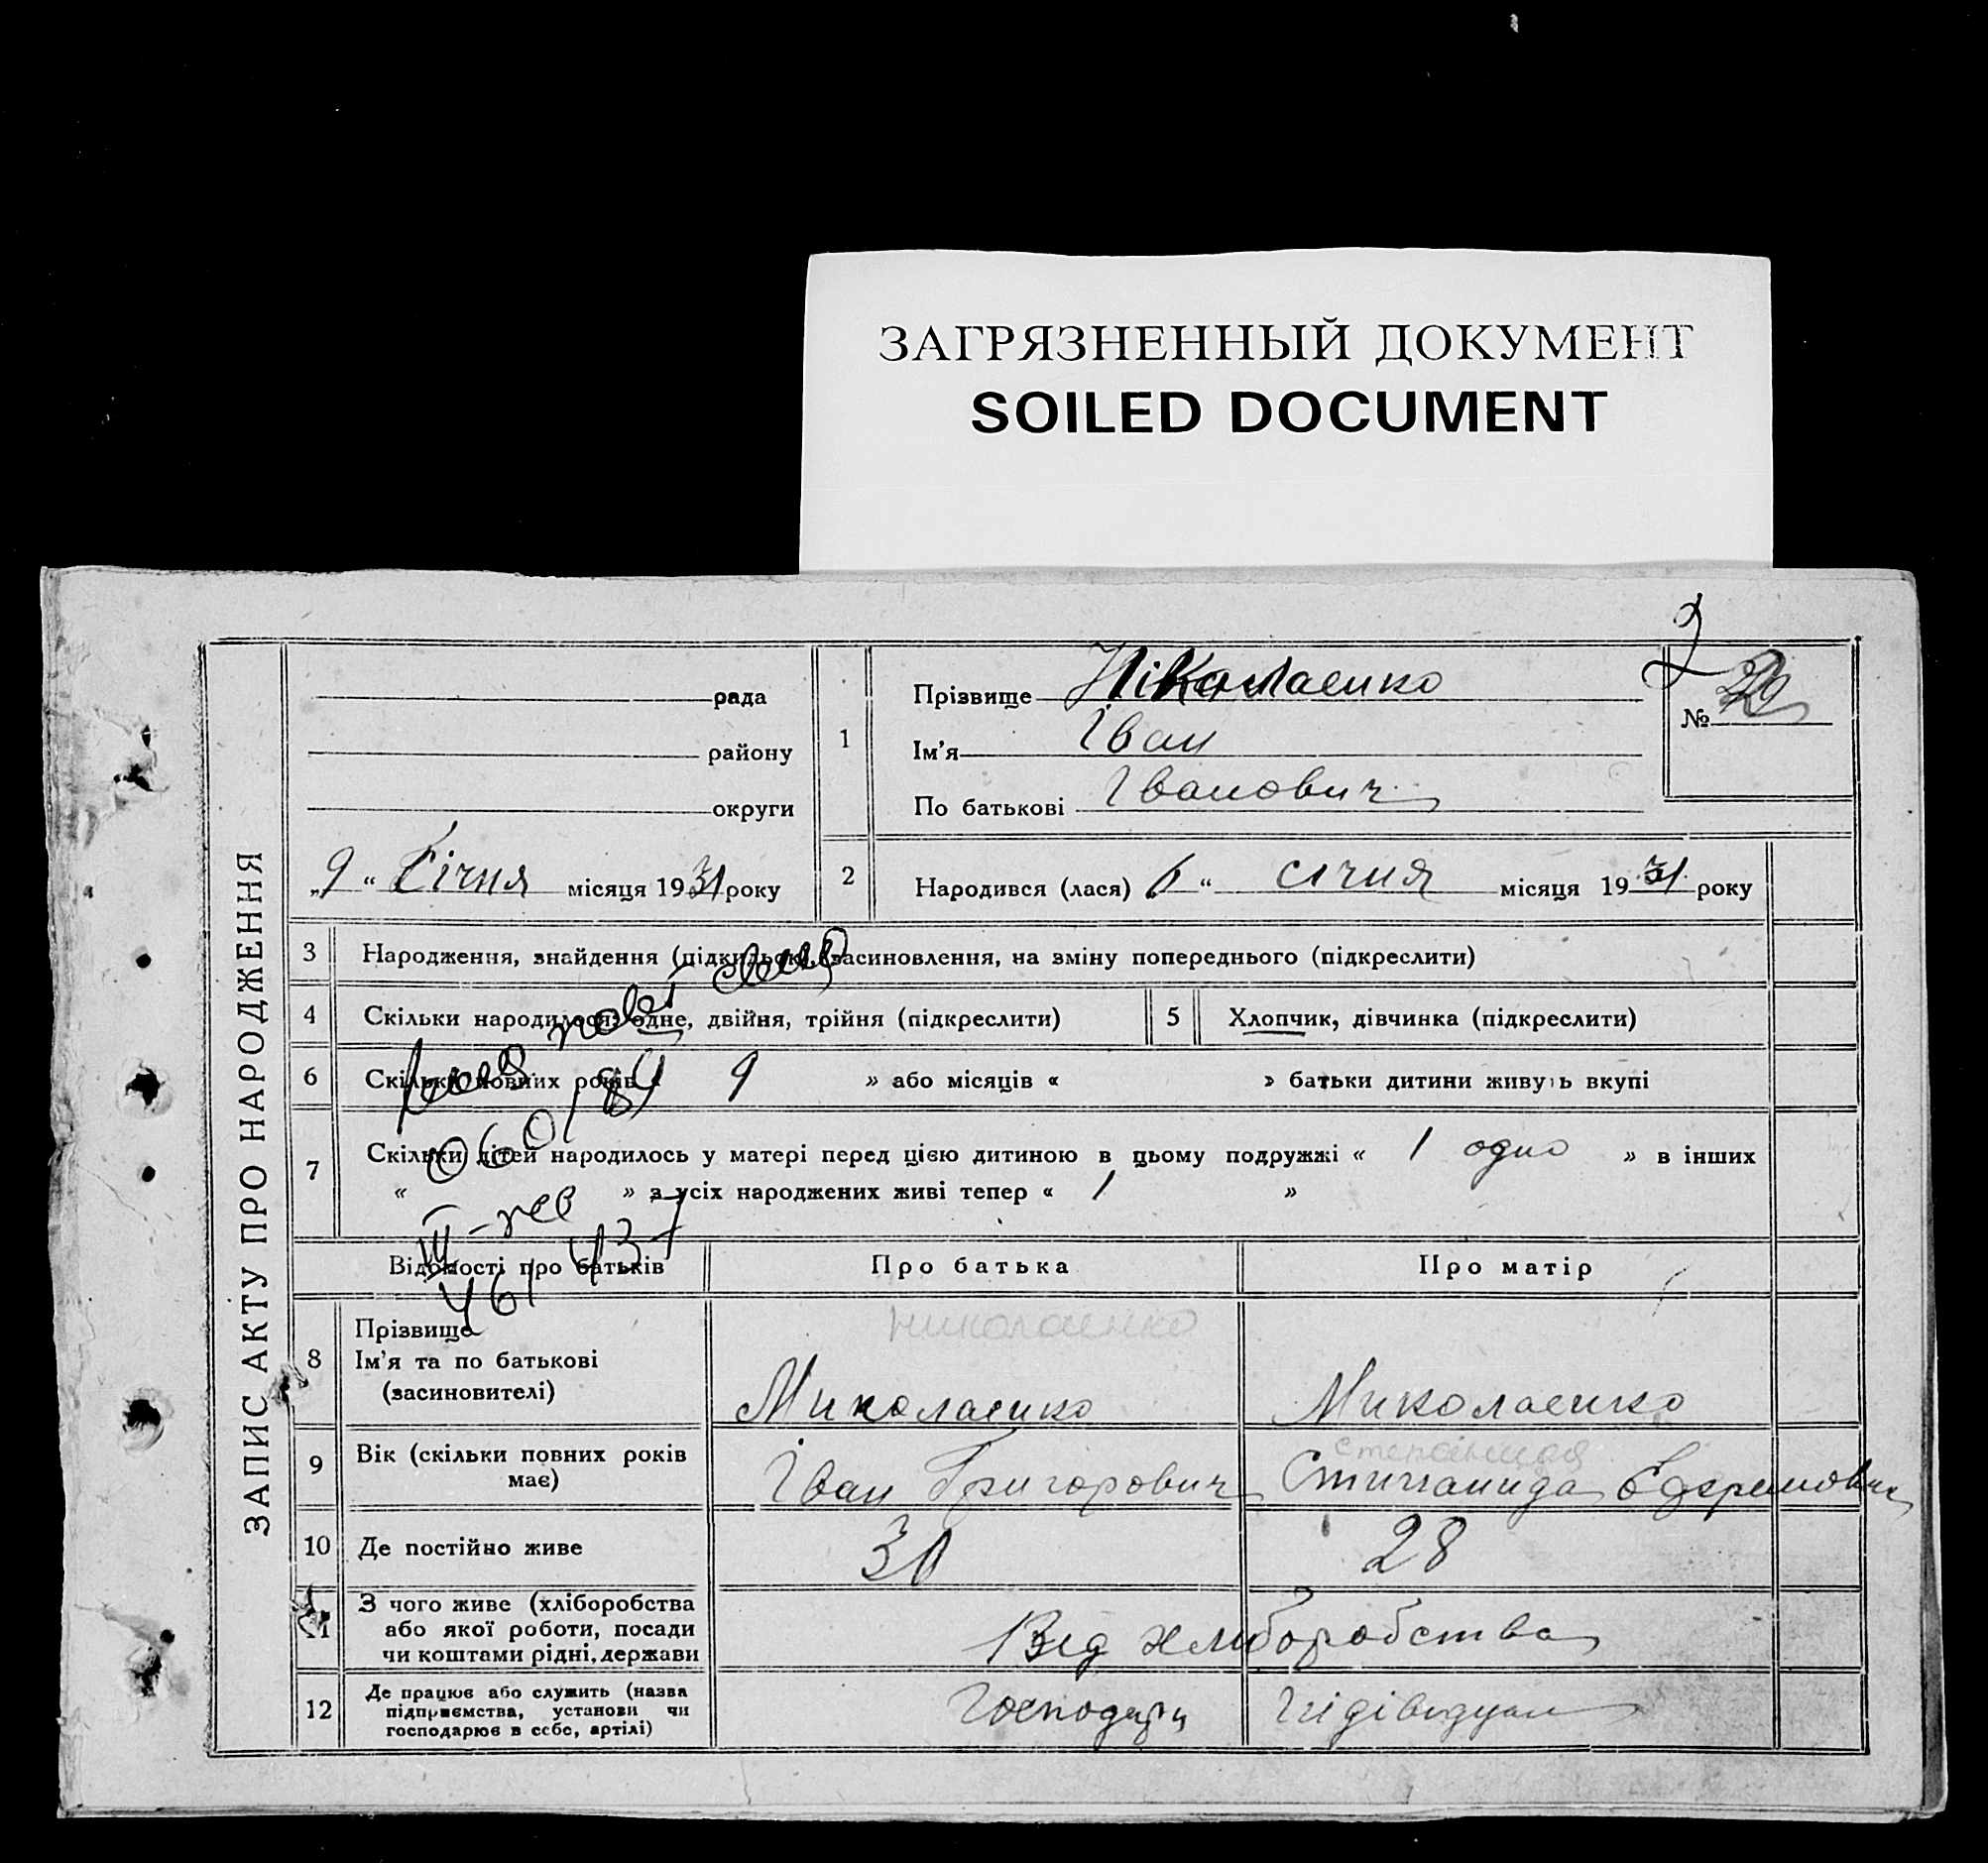 ЗАГРЯЗНЕННЫЙ ДОКУМЕНТ
SOILED DOCUMENT
ЗАПИС АКТУ ПРО НАРОДЖЕННЯ
рада
району
округи
„9“ Січня місяця 1931 року
1
Прізвище Ніколаенко
Ім’я Іван
По батькові Іванович
№
2
2 Народився (лася) 6 “ січня місяця 1931 року
3 Народження, знайдення (підкидьок), засиновлення, на зміну попереднього (підкреслити)
4 Скільки народилося: одне, двійня, трійня (підкреслити)
5 Хлопчик, дівчинка (підкреслити)
6 Скільки повних років « 9 » або місяців « » батьки дитини живуть вкупі
7 Скільки дітей народилось у матері перед цією дитиною в цьому подружжі « 1 одно » в інших
« » з усіх народжених живі тепер « 1 »
III-
461
Відомості про батьків
Про батька
Про матір
8 Прізвище
Ім’я та по батькові
(засиновителі)
Николаенко
Миколаенко
Миколаенко
9 Вік (скільки повних років
має)
Іван Григорович
Степанида
10 Де постійно живе
30
28
11 З чого живе (хліборобства
або якої роботи, посади
чи коштами рідні, держави
Від хлиборобства
12 Де працює або служить (назва
підприємства, установи чи
господарює в себе, артілі)